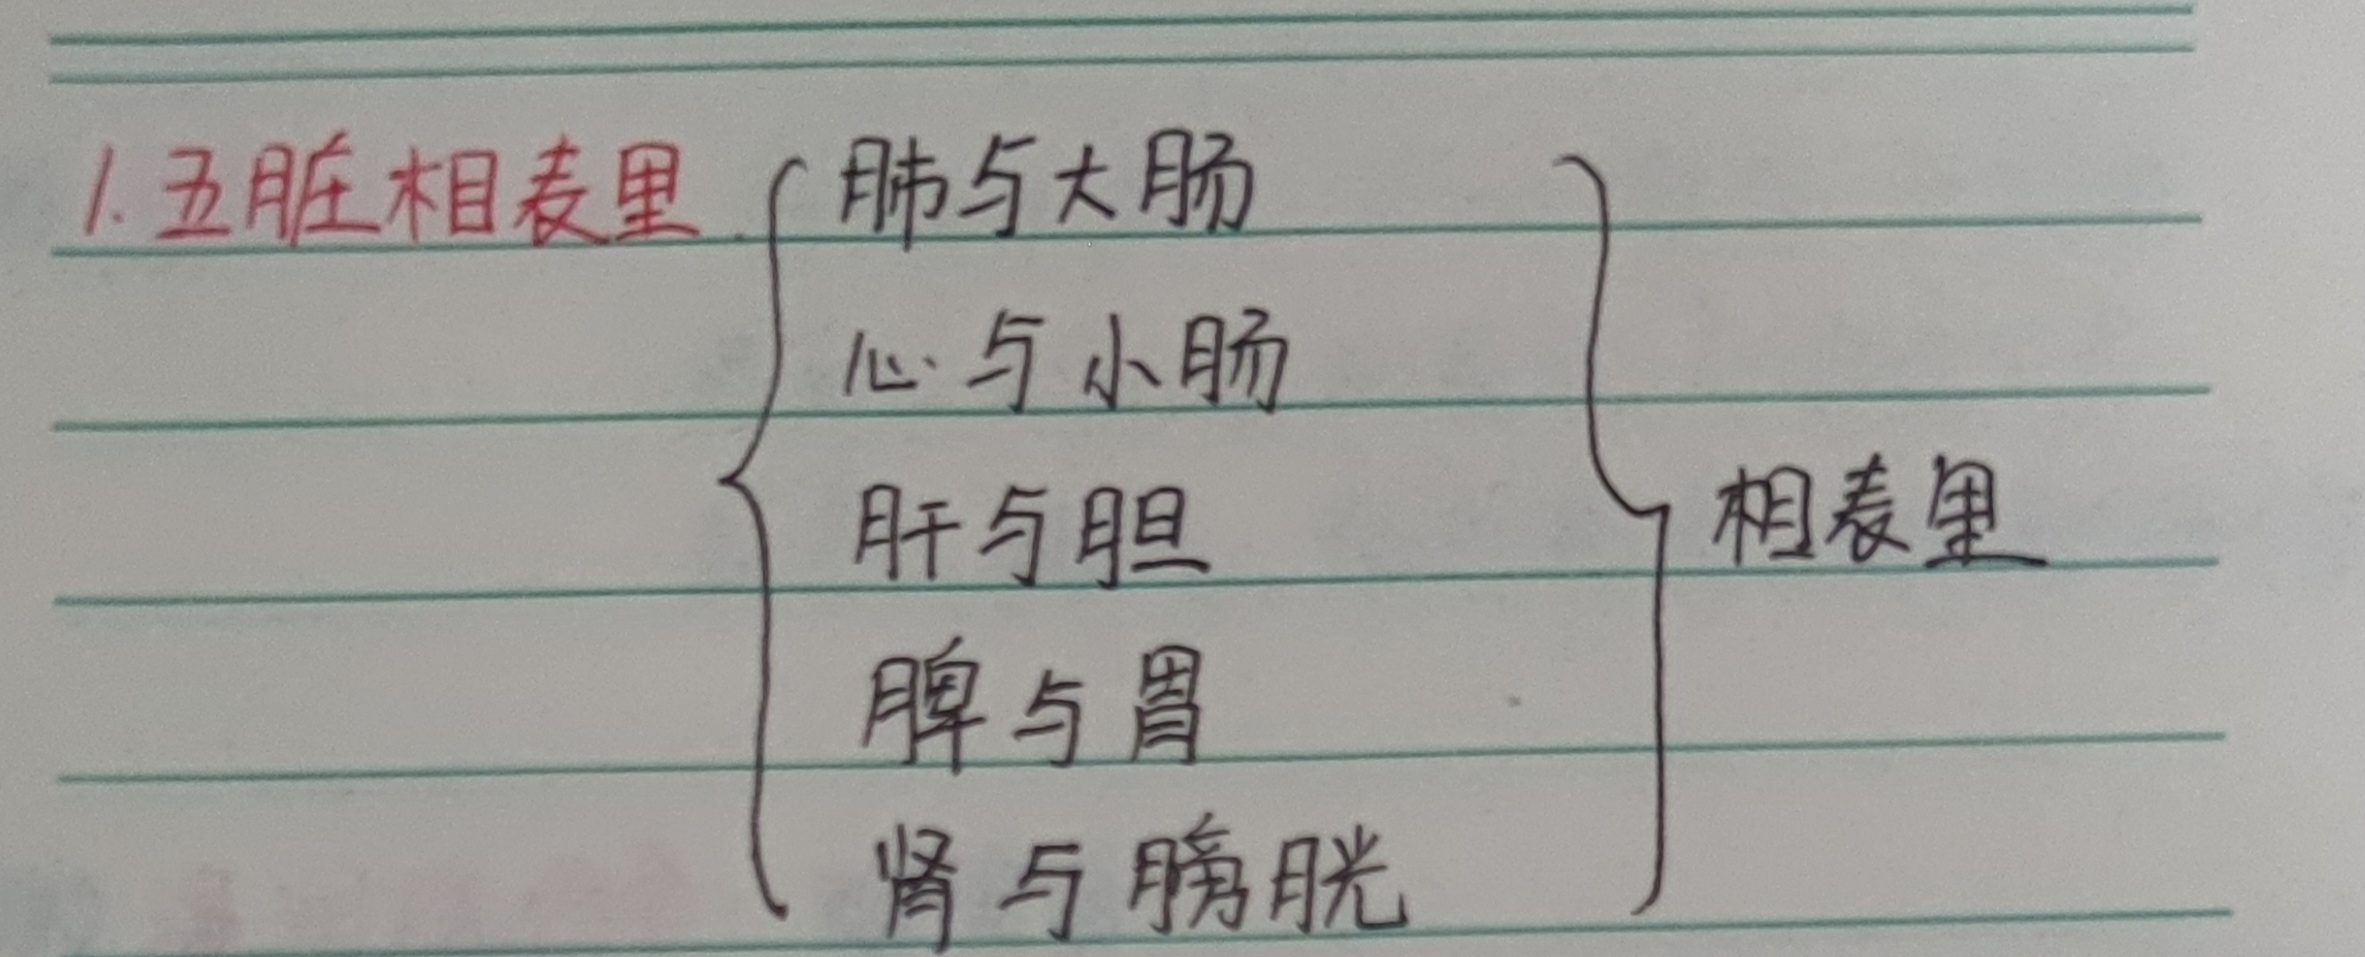 1.五脏相表里 肺与大肠
心与小肠
肝与胆
相表里
脾与胃
肾与膀胱